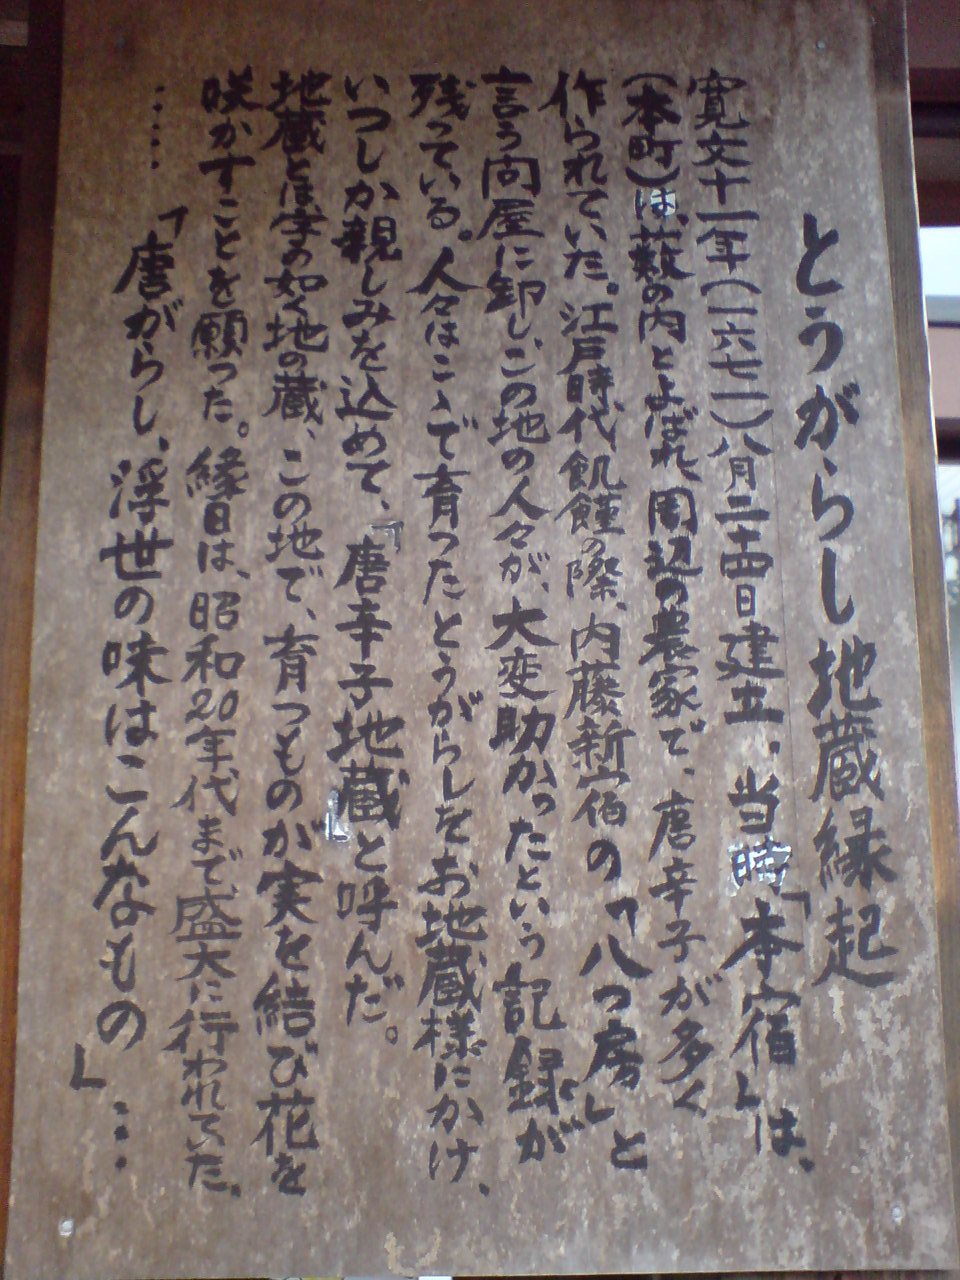 とうがらし地蔵縁起
寛文十一年(一六七一)八月二十四日建立、当時「本宿」は、
(本町)は、薮の内とよばれ、周辺の農家で、唐辛子が多く
作られていた。江戸時代飢饉の際、内藤新宿の「八つ房」と
言う問屋に卸し、この地の人々が、大変助かったという記録が
残っている。人々はこゝで育ったとうがらしをお地蔵様にかけ、
いつしか親しみを込めて、「唐辛子地蔵」と呼んだ。
地蔵とは字の如く地の蔵、この地で、育つものが実を結び花を
咲かすことを願った。縁日は、昭和20年代まで盛大に行われていた。
……「唐がらし、浮世の味はこんなもの」…